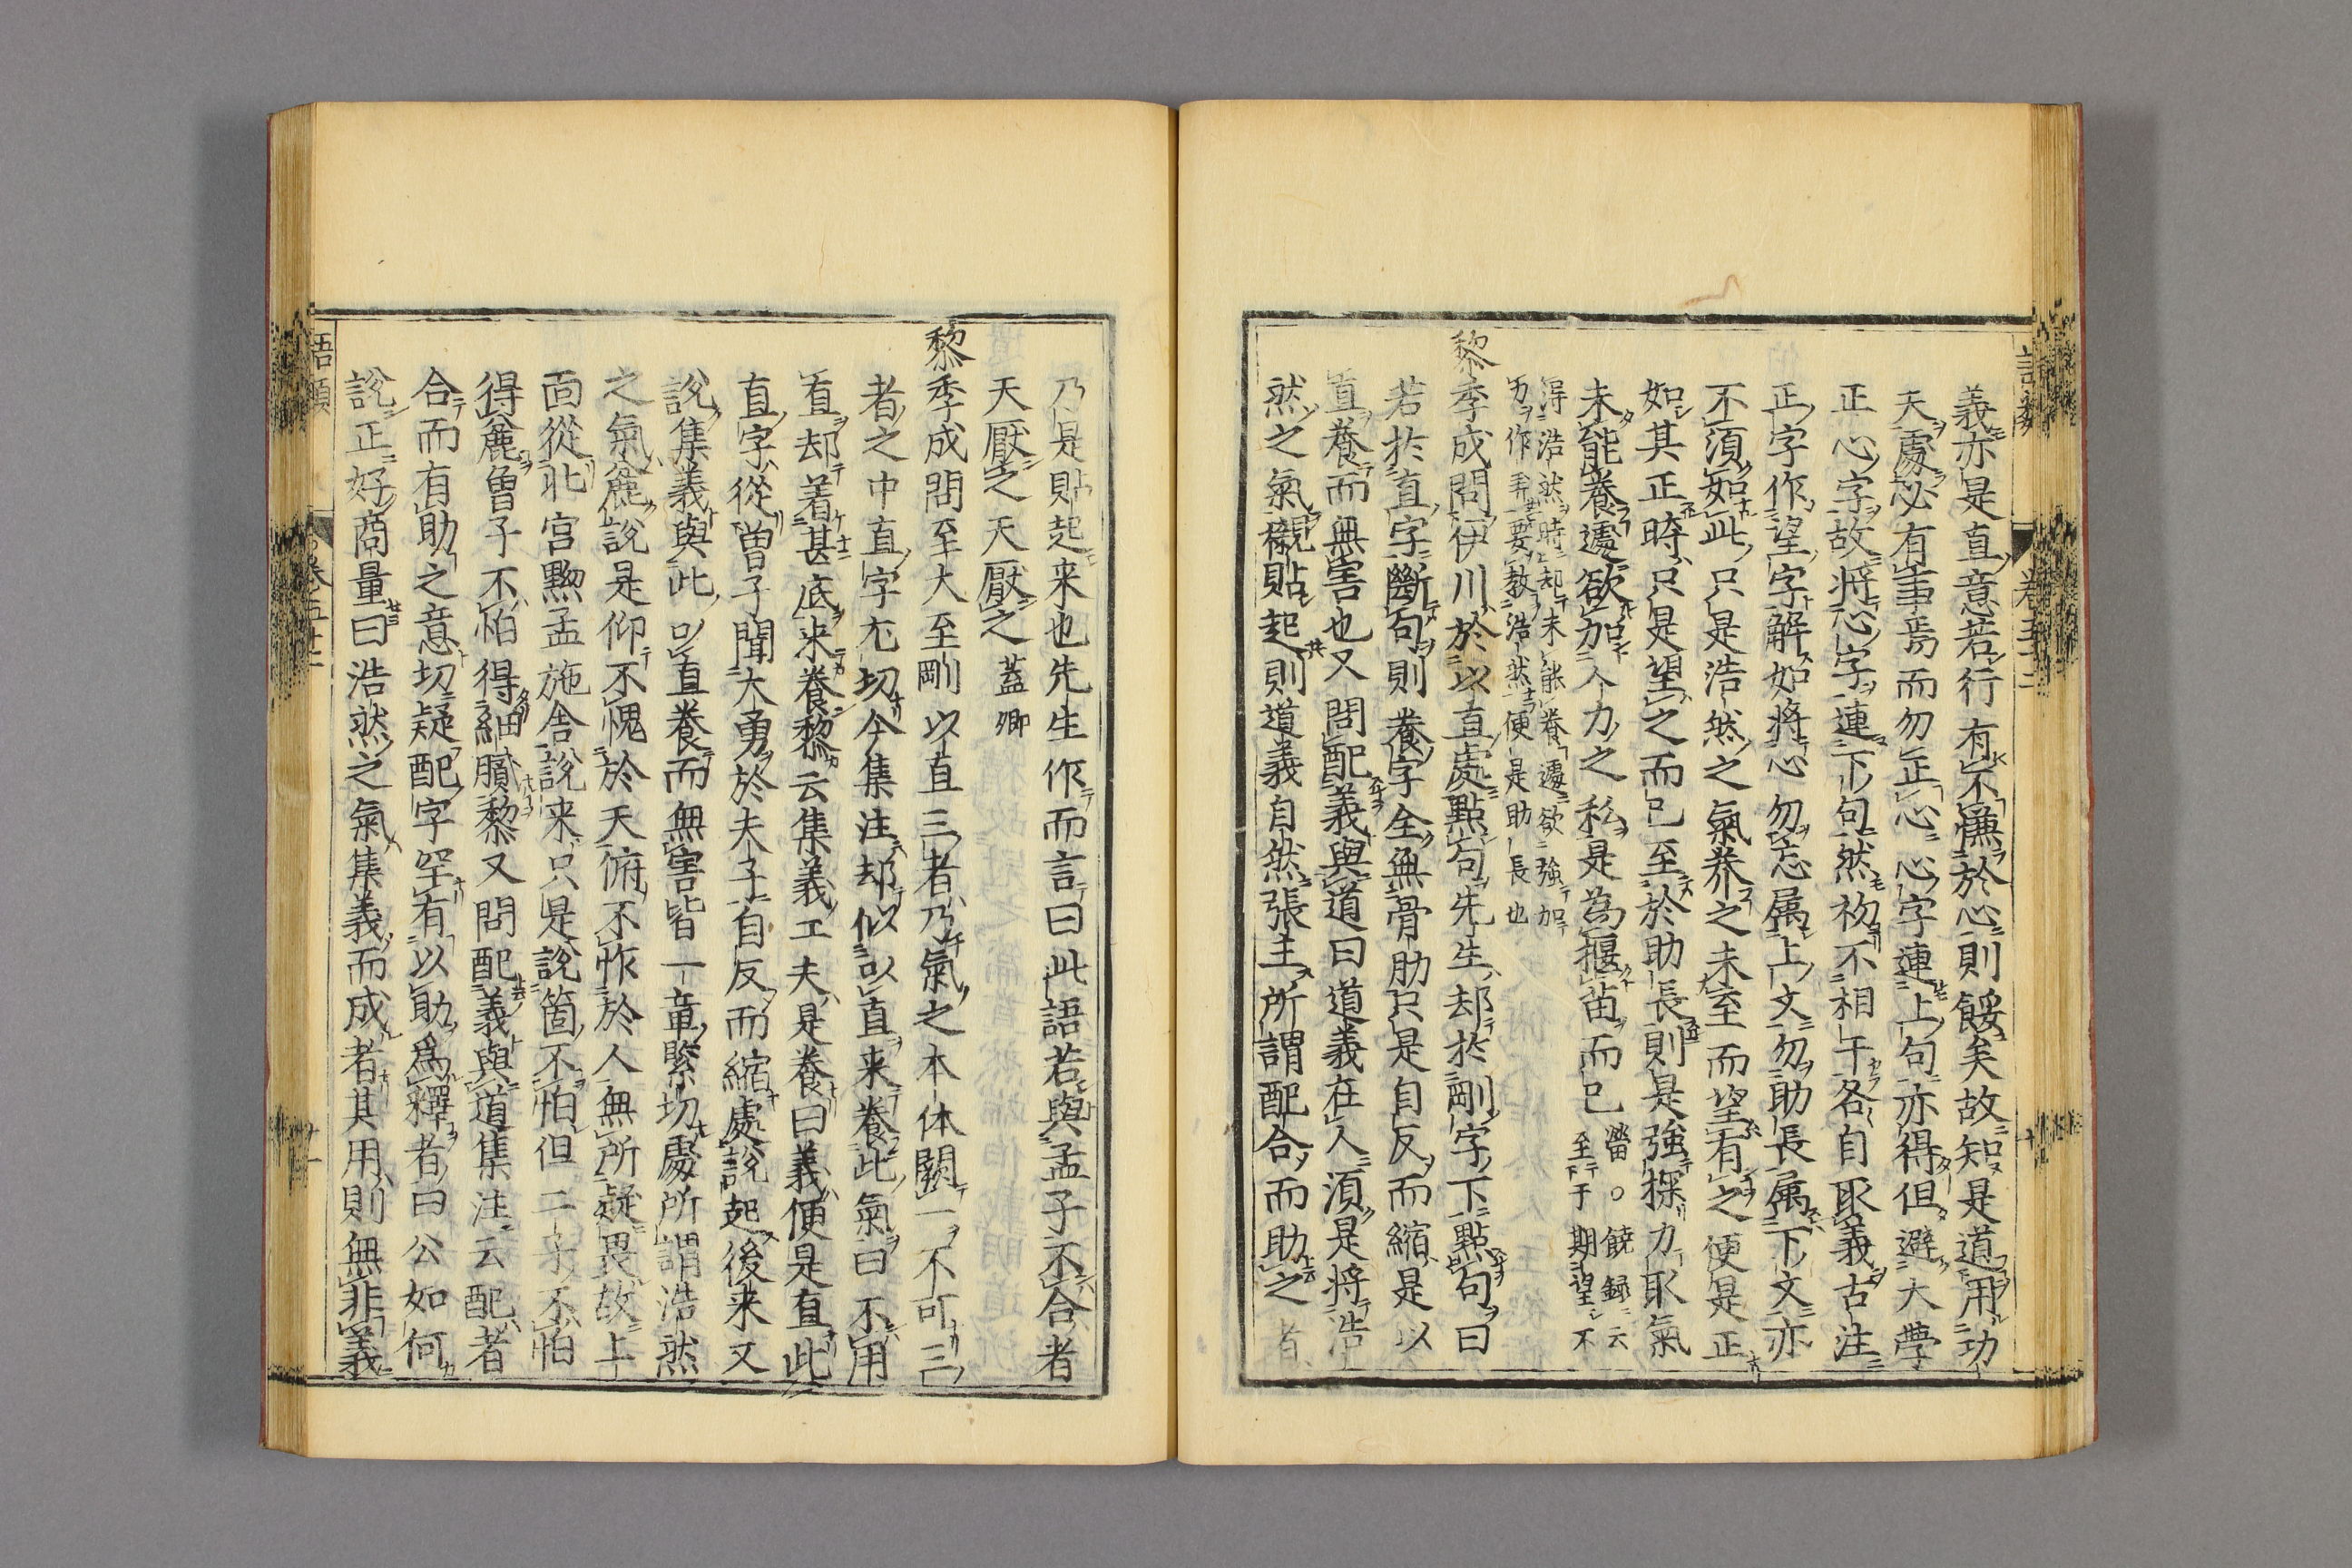 義亦是直意若行有不慊於心則餒矣故知是道用功
天處必有事焉而勿正心心字連上句亦得但避大學
正心字故將心字連下句然初不相干各自取義古注
正字作望字解如將心勿忘属上文勿助長属下文亦
不須如此只是浩然之氣养之未至而望有之便是正
如其正時只是望之而已至於助長則是強探力取氣
未能養遽欲加人力之私是為揠苗而已 㽦○饒録云
至于期望不
得浩然時却未能養遽欲強加
力作弄要教浩然便是助長也
黎季成問伊川於以直處點句先生却於剛字下點句曰
若於直字斷句則養字全無骨肋只是自反而縮是以
直養而無害也又問配義與道曰道義在人須是將浩
然之氣襯貼起則道義自然張主所謂配合而助之者
乃是貼起来也先生作而言曰此語若與孟子不合者
天厭之天厭之 蓋卿
黎季成問至大至剛以直三者乃氣之本体闕一不可三
者之中直字尤切今集注却似以直来養此氣曰不用
直却着甚底来養黎云集義工夫是養曰義便是直此
直字從曽子聞大勇於夫子自反而縮處說起後来又
說集義與此以直養而無害皆一章緊切處所謂浩然
之氣麄說是仰不愧於天俯不怍於人無所疑畏故上
面從北宫黝孟施舍說来只是說箇不怕但二子不怕
得麄曽子不怕得細膩黎又問配義與道集注云配者
合而有助之意切疑配字罕有以助爲釋者曰公如何
說正好商量曰浩然之氣集義而成者其用則無非義
語類
卷五十二